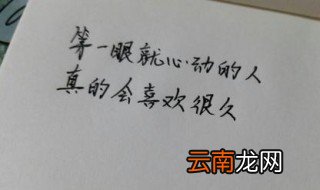 第一眼就心动的人
真的会喜欢很久
云南龙网